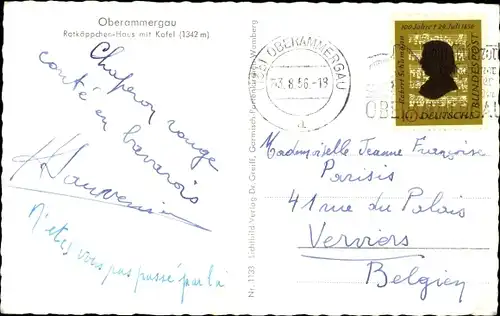 Oberammergau
Rotkäppchen-Haus mit Kofel (1342 m)
Chaperon rouge
conté en bavarois
N'êtes vous pas passé par là
Nr. 1133 Lichtbild Verlag Dr. Greiff, Garmisch-Partenkirchen - Wamberg
OBERAMMERGAU
-3.8.56.-18
a
100 Jahre † 29. Juli 1856
Robert Schumann
DEUTSCHE
BUNDESPOST
Mademoiselle Jeanne Françoise
Parisis
41 rue du Palais
Verviers
Belgien